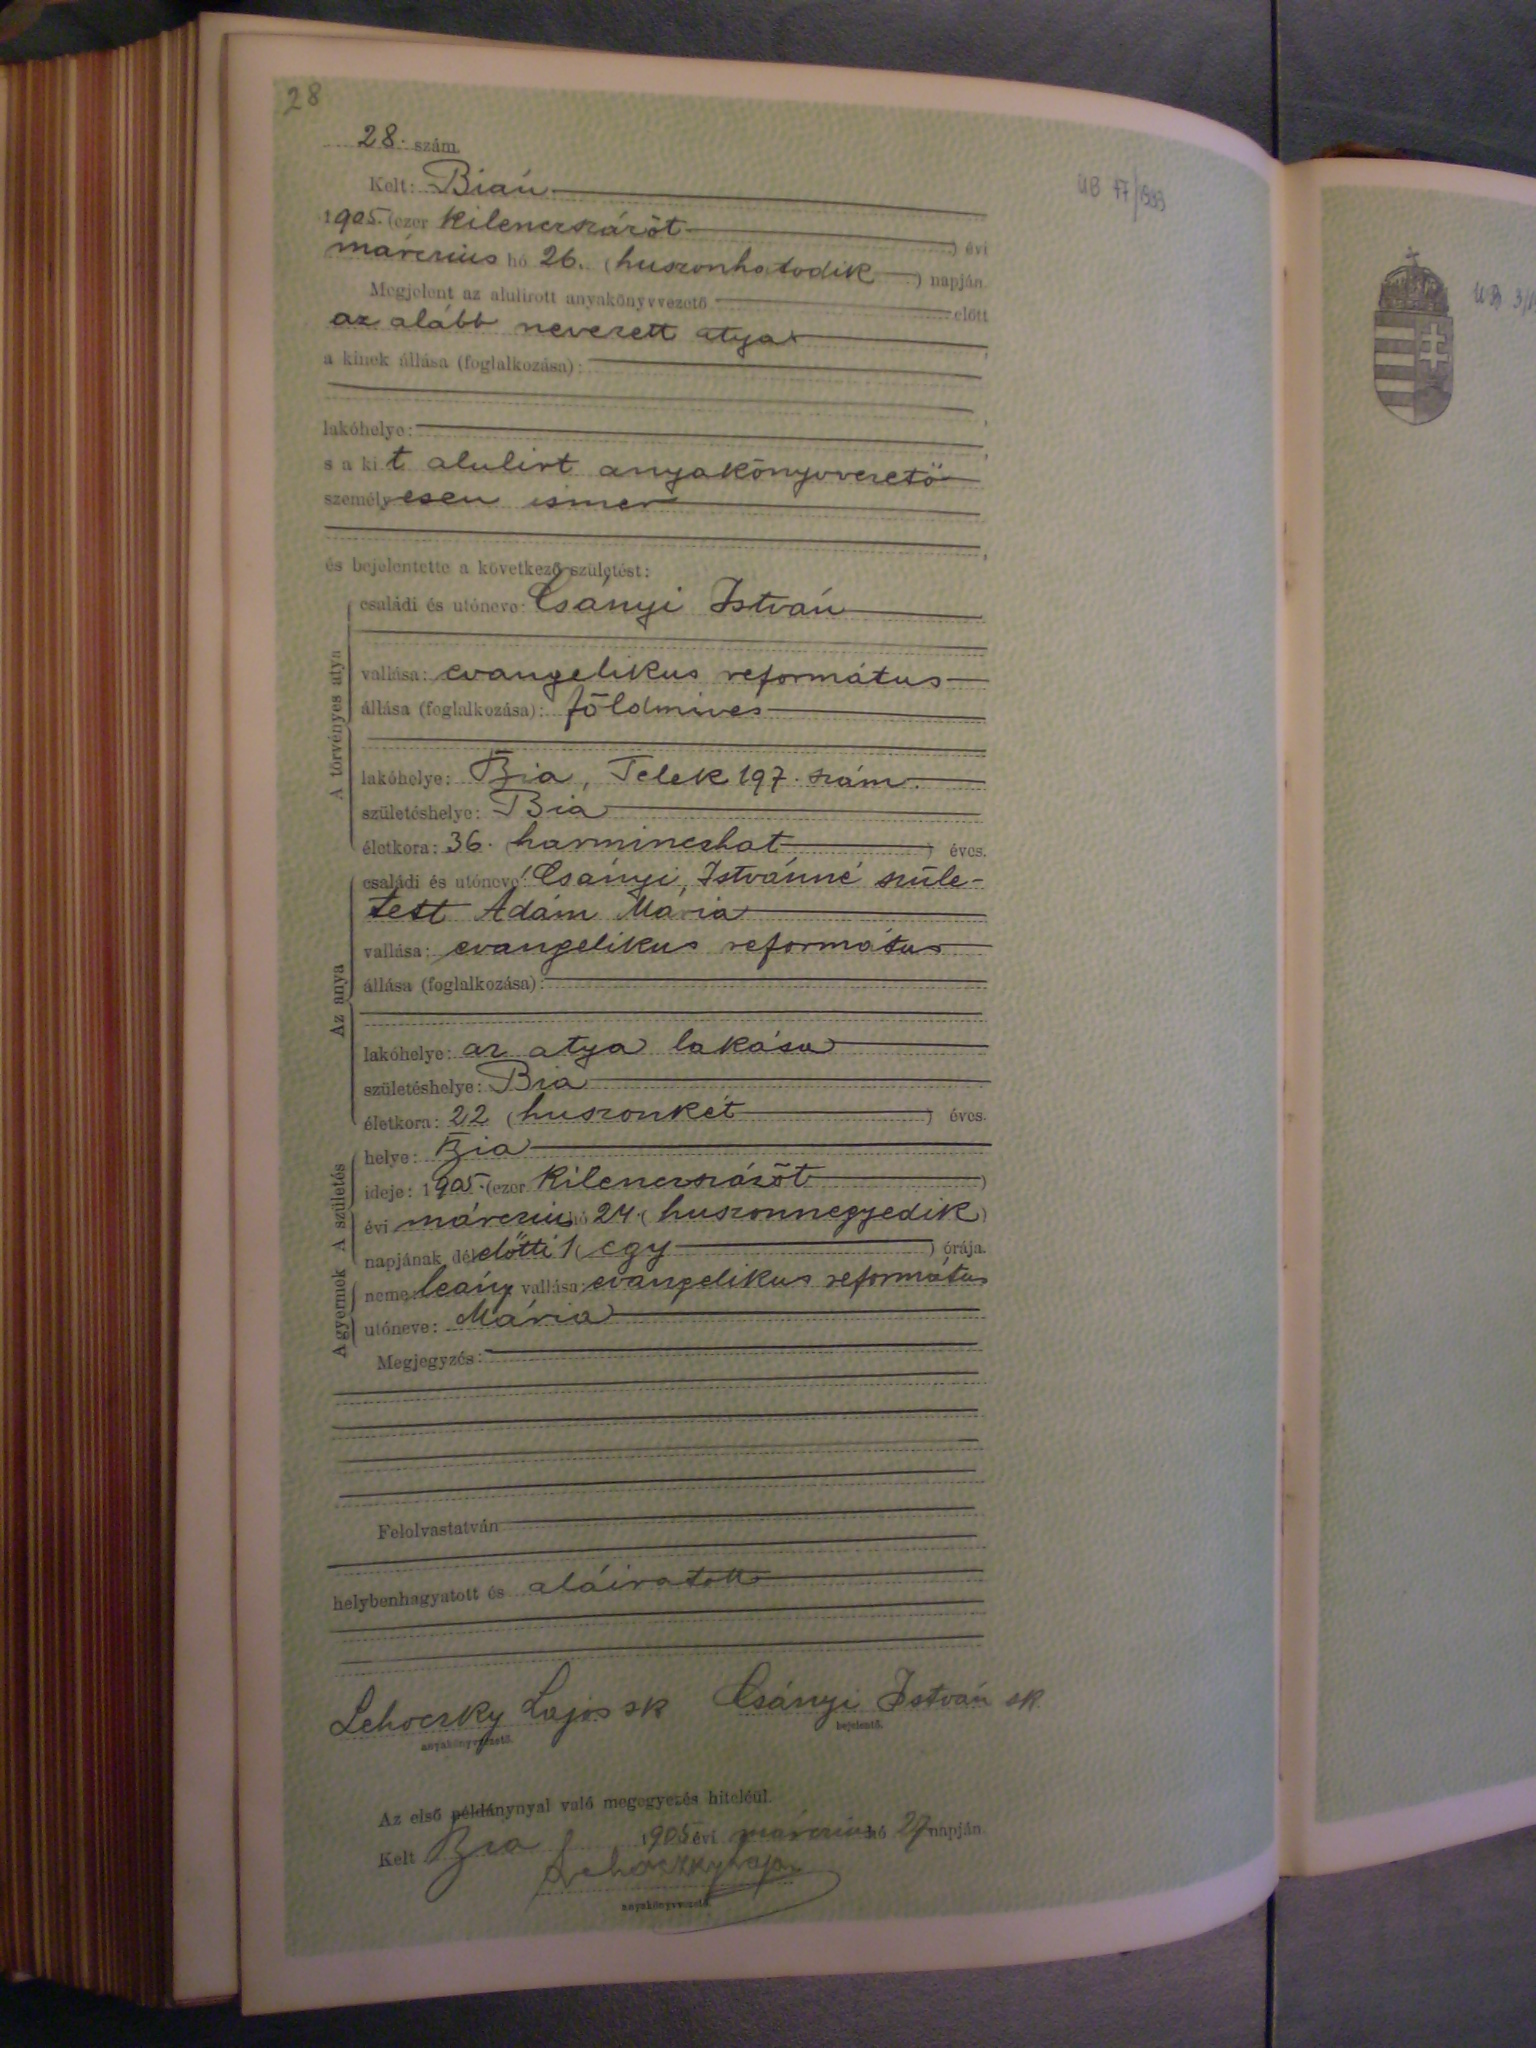 28
28. szám.
Kelt: Bián
1905. (ezer kilenczszázöt) évi
márczius hó 26. (huszonhatodik) napján
Megjelent az alulirott anyakönyvvezető előtt
az alább nevezett atya,
a kinek állása (foglalkozása):
lakóhelye:
s a kit alulirt anyakönyvvezető
személyesen ismer
és bejelentette a következő születést:
A törvényes atya
családi és utóneve: Csányi István
vallása: evangelikus református
állása (foglalkozása): földmives
lakóhelye: Bia, Telek 197. szám.
születéshelye: Bia
életkora: 36. (harminczhat) éves.
Az anya
családi és utóneve: Csányi Istvánné szüle-
tett Ádám Mária
vallása: evangelikus református
állása (foglalkozása):
lakóhelye: az atya lakása
születéshelye: Bia
életkora: 22 (huszonkét) éves.
A születés
helye: Bia
ideje: 1905. (ezer kilenczszázöt)
évi márczius hó 24. (huszonnegyedik)
napjának délelőtti 1 (egy) órája.
A gyermek
neme: leány vallása: evangelikus református
utóneve: Mária
Megjegyzés:
Felolvastatván
helybenhagyatott és aláiratott
Lehoczky Lajos sk Csányi István sk
anyakönyvvezető. bejelentő.
Az első példánynyal való megegyezés hiteléül.
Kelt Bia 1905 évi márczius hó 27 napján
Lehoczky Lajos
anyakönyvvezető.